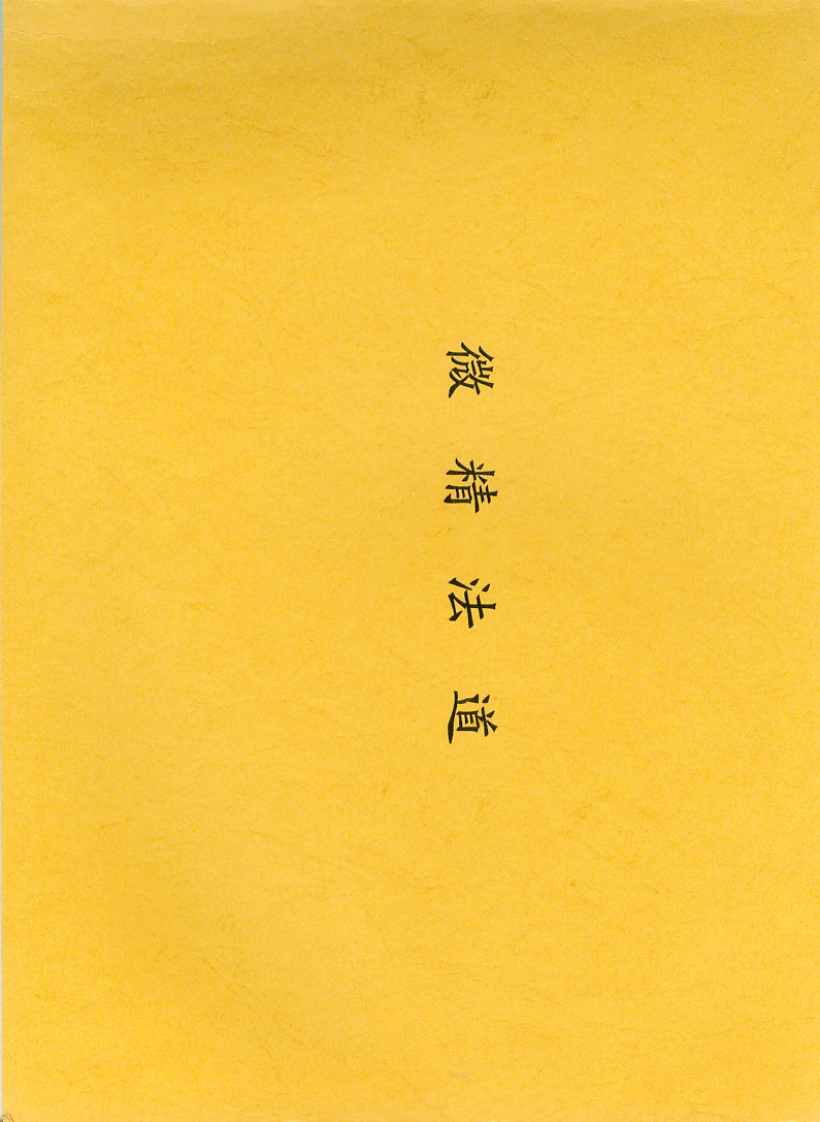 道法精微